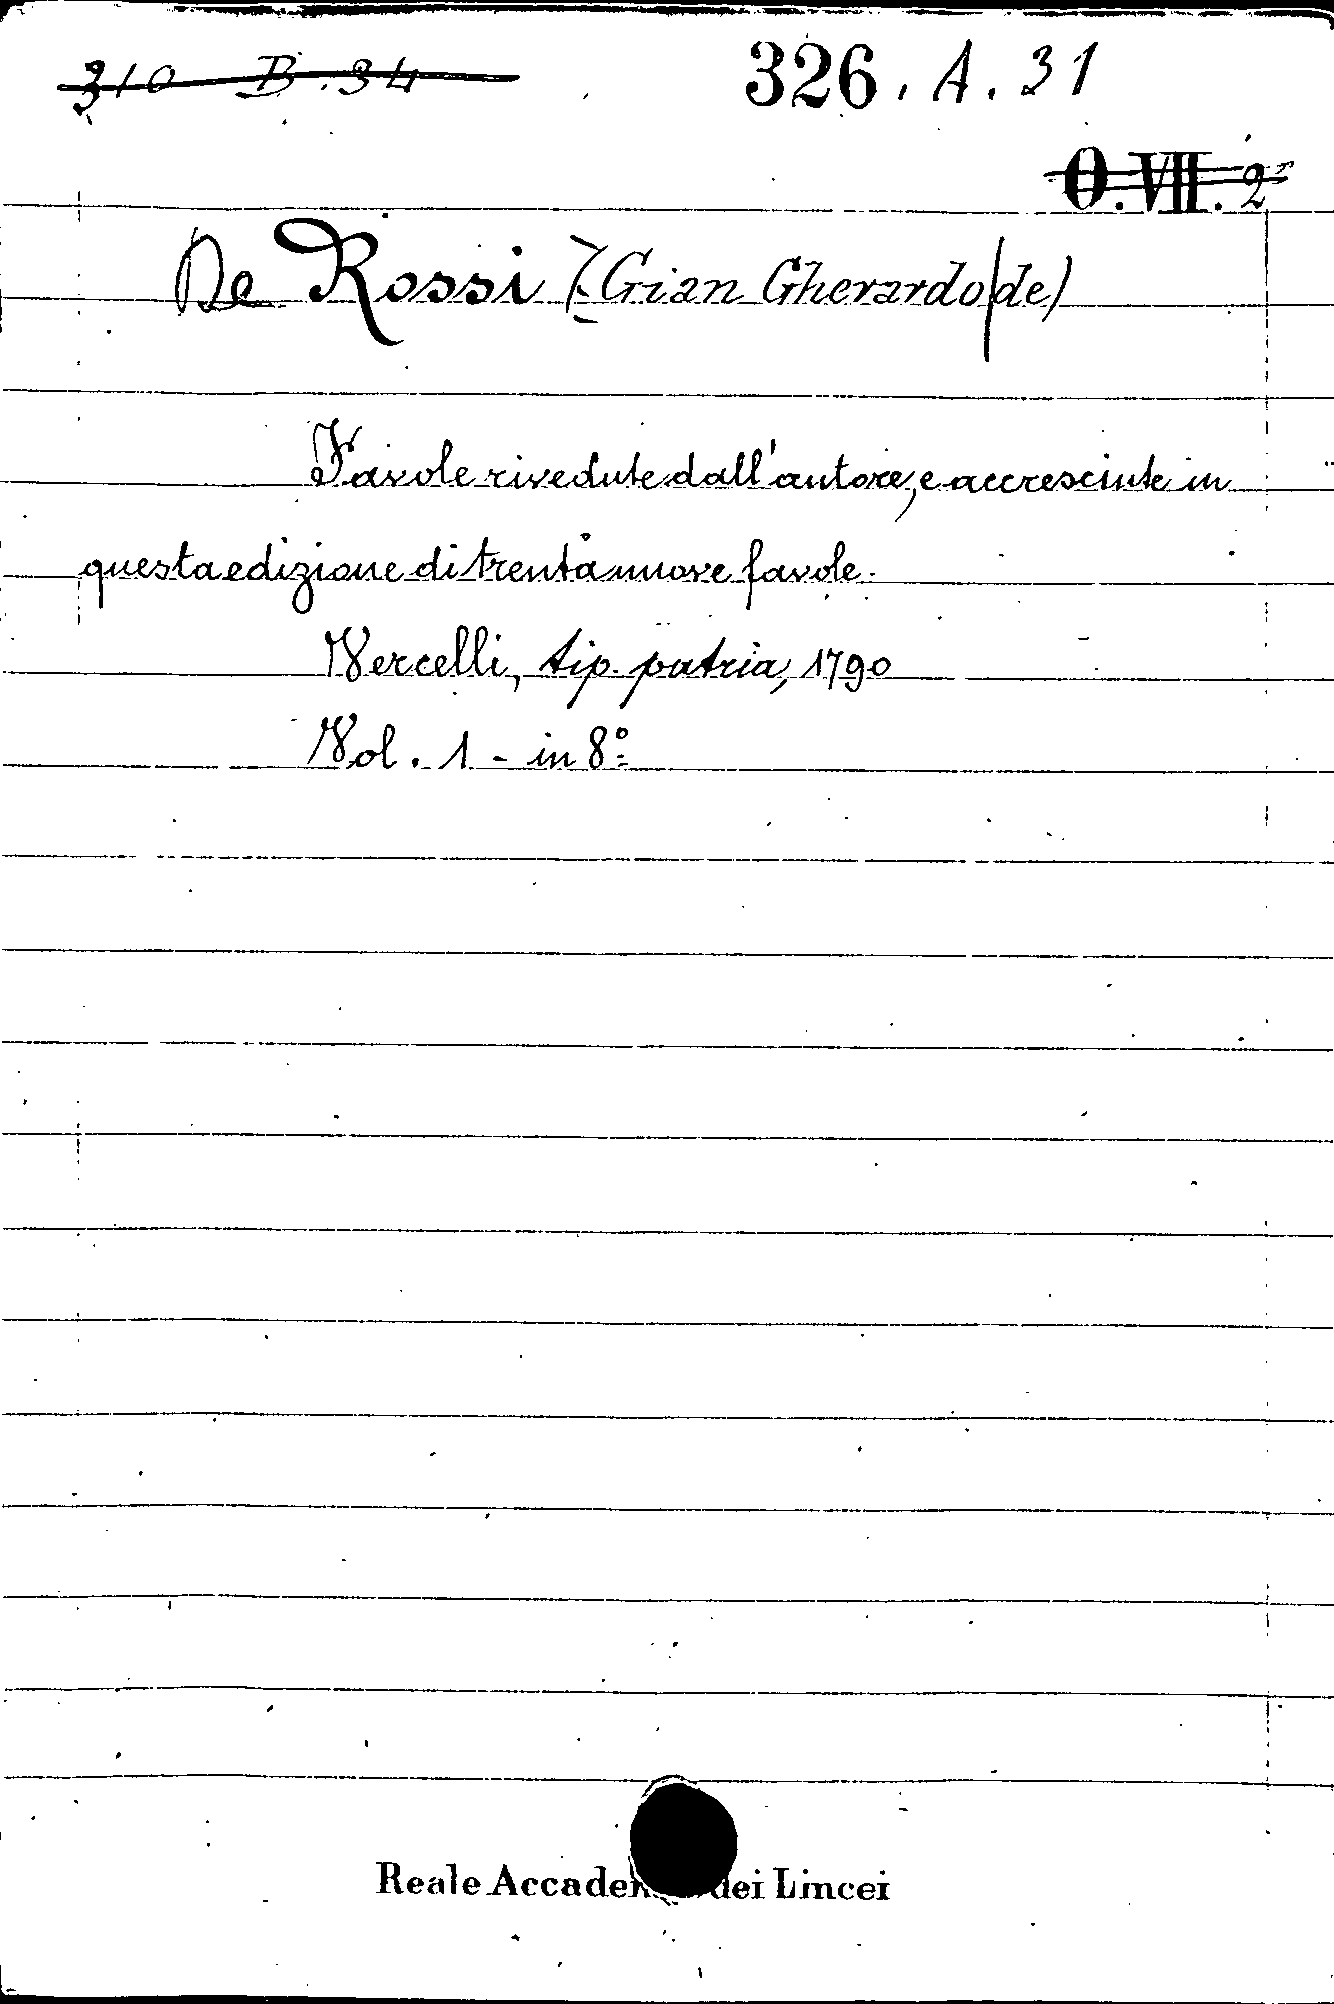 310 B. 34
326. A. 31
O. VII. 2
De Rossi (Gian Gherardo de)
Favole rivedute dall'autore, e accresciute in
questa edizione di trenta nuove favole.
Vercelli, tip. patria, 1790
Vol. 1 - in 8º
Reale Accadem dei Lincei